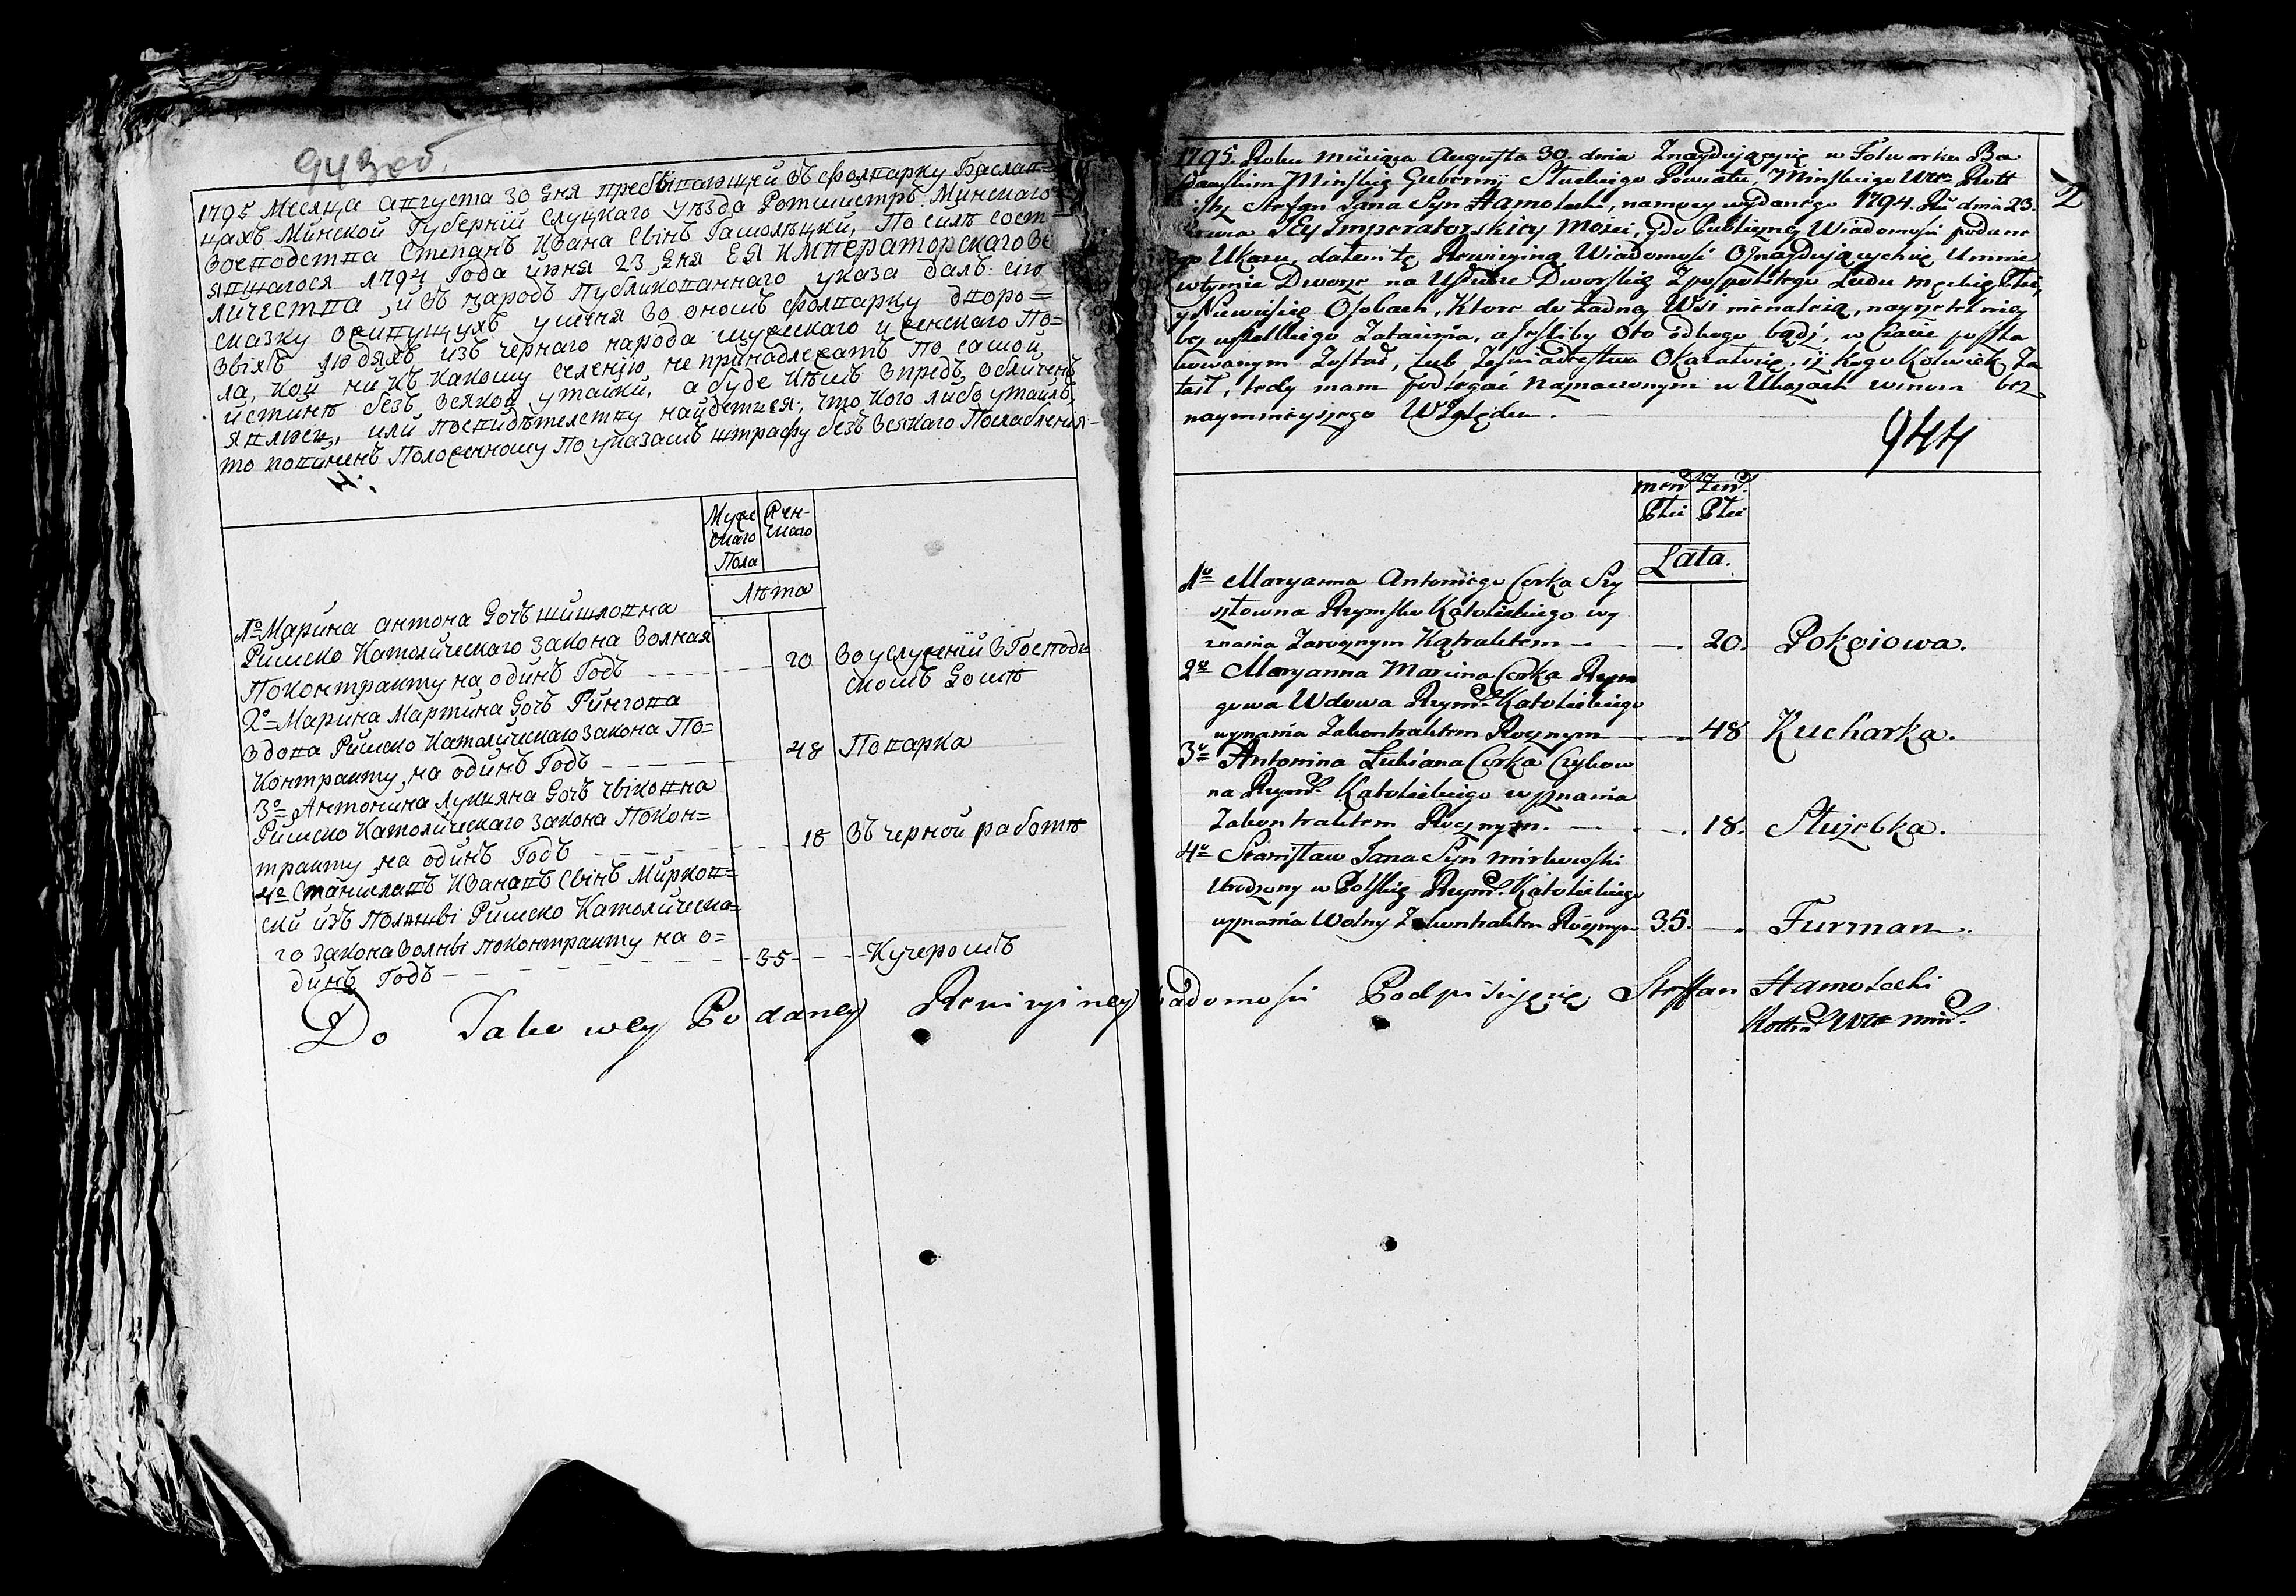 943 об.
1795 Месяца августа 30 дня пребывающей въ фолварку Баслав=
цахъ Минской Губерніи Слуцкаго уезда Ротмистръ Минскаго
воеводства Степанъ Ивана Сынъ Гамолѣцкй, По силѣ сост
явшагося 1794 Года июня 23 дня ЕЯ ИМПераторскаго Ве
личества, и въ народъ Публикованнаго указа далъ сію
сказку о живущухъ у меня во ономъ фолварку дворо=
выхъ людяхъ изъ чернаго народа мужескаго и женскаго По=
ла, кои ни къ какому селенію не принадлежатъ по самой
истинѣ безъ всякой утайки, а буде кѣмъ впредъ обличенъ
явлюсь, или посвидѣтелству найдется, что кого либо утаилъ,
то повиненъ Положенному по указамъ штрафу безъ всякаго Послабления
Муже
скаго
Пола
Жен-
скаго
Лѣта
1º Марина антона Дочъ шишловна
Римско Католическаго закона волная
Поконтракту на одинъ Годъ 20 во услуженіи в Господи
скомъ Домѣ
2º Марина Мартина Дочъ Рингова
вдова Римско Католическаго закона По=
контракту на одинъ Годъ 48 Поварка
3º Антонина Лукяна Дочъ чыковна
Римско Католическаго закона Покон=
тракту на одинъ Годъ 18 Въ черной работѣ
4º Станиславъ Ивановъ Сынъ Мирков=
скй изъ Полшы Римско Католическа=
го закона волны поконтракту на о=
динъ Годъ 35 Кучеромъ
1795. Roku miesiąca Augusta 30. dnia Znayduiącysię w Folwarku Ba
sławskim Minskiey Gubernij Słuckiego Powiatu, Minskiego Wtwa Rott
Stefan Jana Syn Hamolecki, namocy wydanego 1794. Ru dnia 23.
IEy Imperatorskiey Mości, y do Publiczney Wiadomości podane
go Ukazu, datem tę Rewizyiną Wiadomość Oznayduiącychsię Umnie
wtymże Dworze na Usłudze Dworskiey Zpospolitego Ludu męskiey Płci,
y Niewieściey Osobach, Ktore do żadney Wsi nienależą, nayrzetelniey
bez wszelkiego Zataienia, a jeśliby Oto odkogo bądź, w czasie poszla
kowanym Został, lub Zeswiadectwa Okazałosię, iż kogo kolwiek Za
taił, tedy mam podlegać Naznaczonym w Ukazach winom bez
naymnieyszego Względu.
2
944
męs. Płci
Żeń. Płci
Lata.
1º Maryanna Antoniego Corka Szy
szłowna Rzymsko Katolickiego wy
znania Zarocznym Kątraktem 20. Pokoiowa.
2º Maryanna Marcina Corka Ryn
gowa Wdowa Rzyms. Katolickiego
wyznania Zakontraktem Rocznym 48 Kucharka.
3º Antonina Łukiana Corka Czykow
na Rzyms. Katolickiego wyznania
Zakontraktem Rocznym. 18. Służebka.
4º Stanisław Jana Syn Mirkowski
Urodzony w Polskiey Rzyms. Katolickiego
wyznania Wolny Zakontraktem Rocznym 35. Furman.
Do Takowey Podaney Rewizyiney Wiadomości Podpisuięsię Steffan Hamolecki
Rottm. Wtwa min.